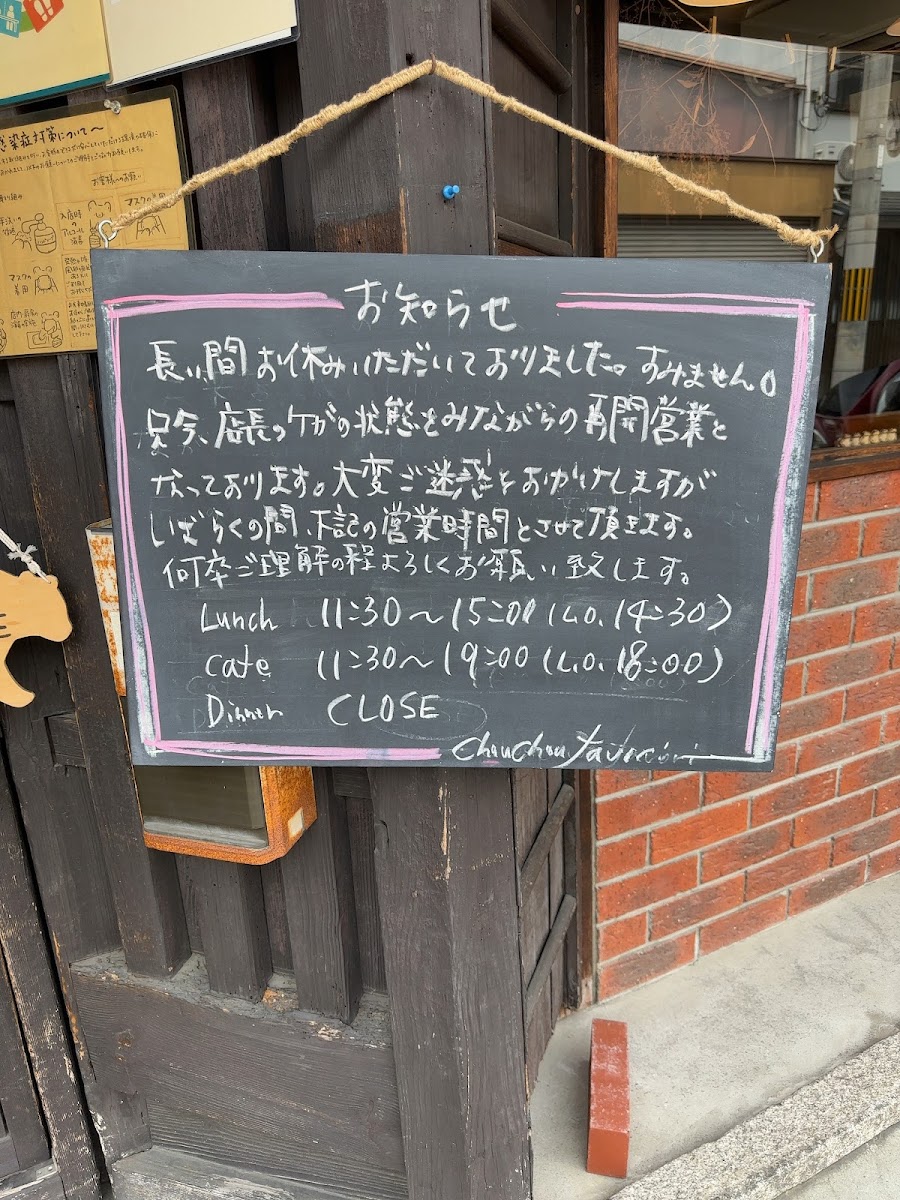 感染症対策について〜
お客様へのお願い
マスクの着用
入店時の
アルコール
消毒
マスクの
着用
お知らせ
長い間お休みいただいておりました。すみません。
只今、店長のケガの状態をみながらの再開営業と
なっております。大変ご迷惑をおかけしますが
しばらくの間、下記の営業時間とさせて頂きます。
何卒ご理解の程よろしくお願い致します。
Lunch 11:30〜15:00 (L.O. 14:30)
cafe 11:30〜19:00 (L.O. 18:00)
Dinner CLOSE
ChouChou